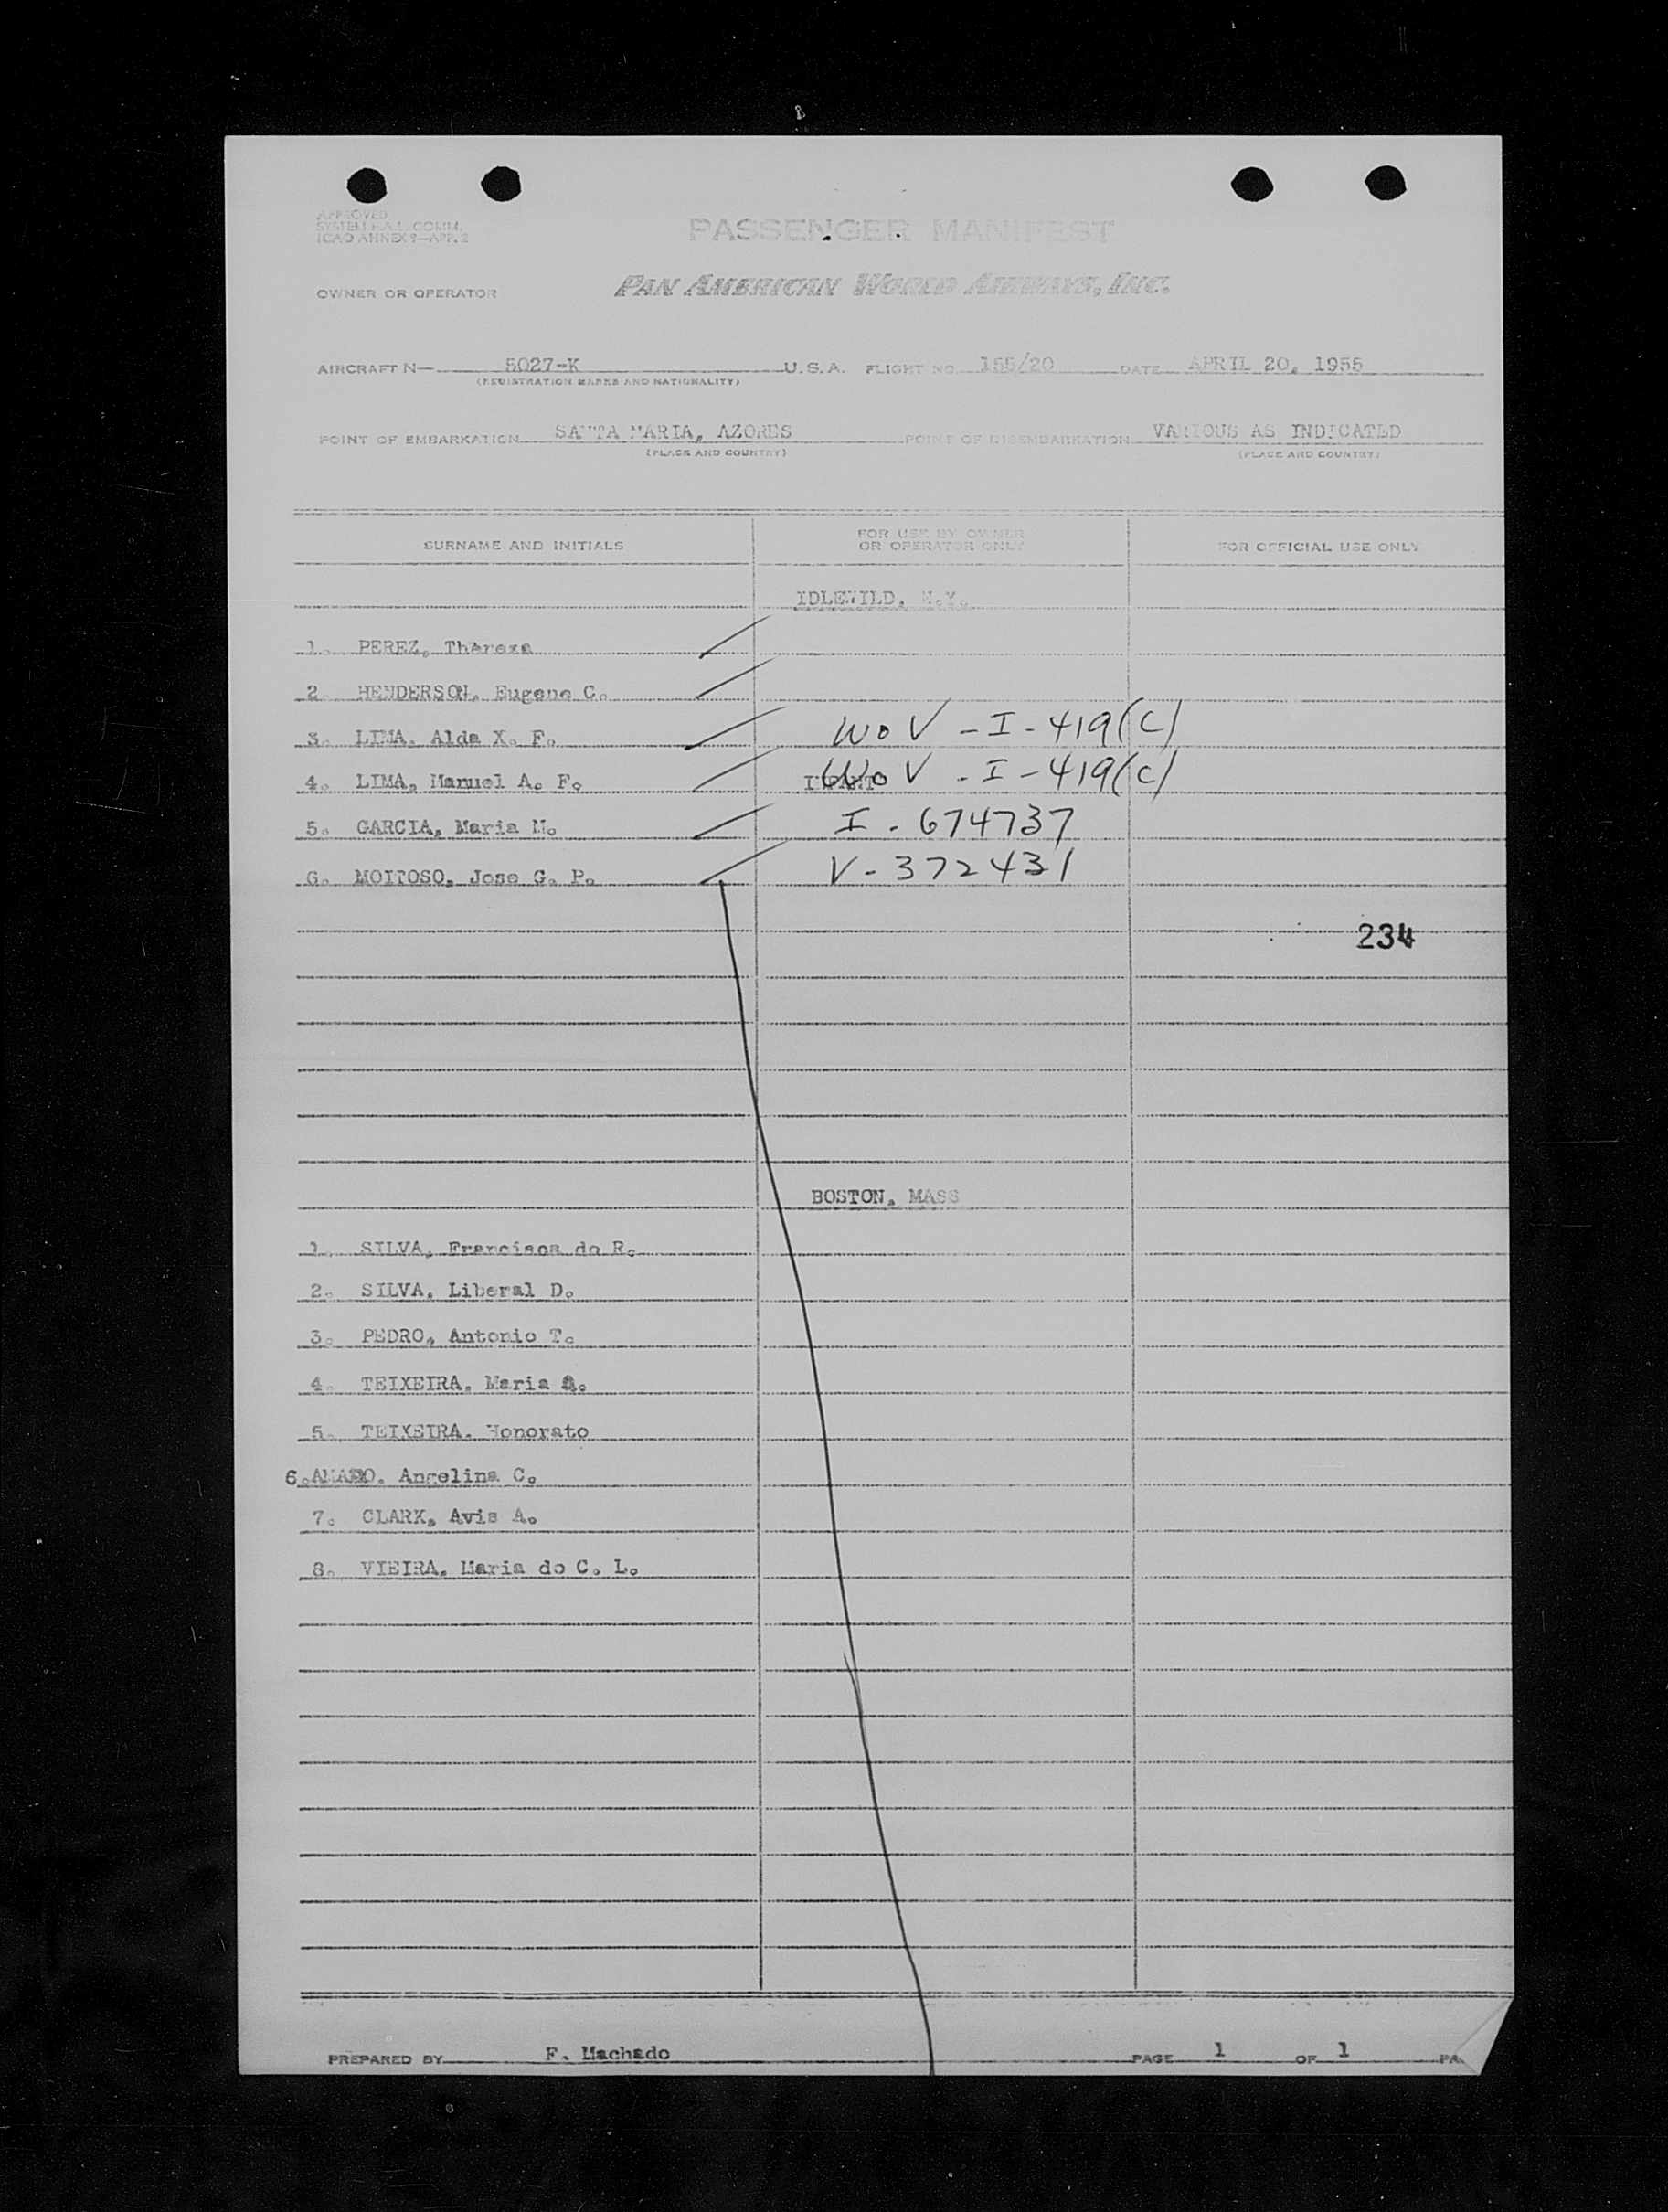 APPROVED
SYSTEM F.A.L. COMM.
ICAO ANNEX 9—APP. 2
PASSENGER MANIFEST
OWNER OR OPERATOR PAN AMERICAN WORLD AIRWAYS, INC.
AIRCRAFT N— 5027-K U.S.A. FLIGHT NO. 155/20 DATE APRIL 20, 1955
(REGISTRATION MARKS AND NATIONALITY)
POINT OF EMBARKATION SANTA MARIA, AZORES POINT OF DISEMBARKATION VARIOUS AS INDICATED
(PLACE AND COUNTRY) (PLACE AND COUNTRY)
SURNAME AND INITIALS FOR USE BY OWNER OR OPERATOR ONLY FOR OFFICIAL USE ONLY
IDLEWILD, N.Y.
1. PEREZ, Thereza
2. HENDERSON, Eugene C.
3. LIMA, Alda X. F. WoV - I - 419(C)
4. LIMA, Manuel A. F. INFANT WoV - I - 419(C)
5. GARCIA, Maria M. I - 674737
6. MOITOSO, Jose G. P. V - 372431
234
BOSTON, MASS
1. SILVA, Francisca do R.
2. SILVA, Liberal D.
3. PEDRO, Antonio T.
4. TEIXEIRA, Maria
5. TEIXEIRA, Honorato
6. Angelina C.
7. CLARK, Avis A.
8. VIEIRA, Maria do C. L.
PREPARED BY F. Machado PAGE 1 OF 1 PA